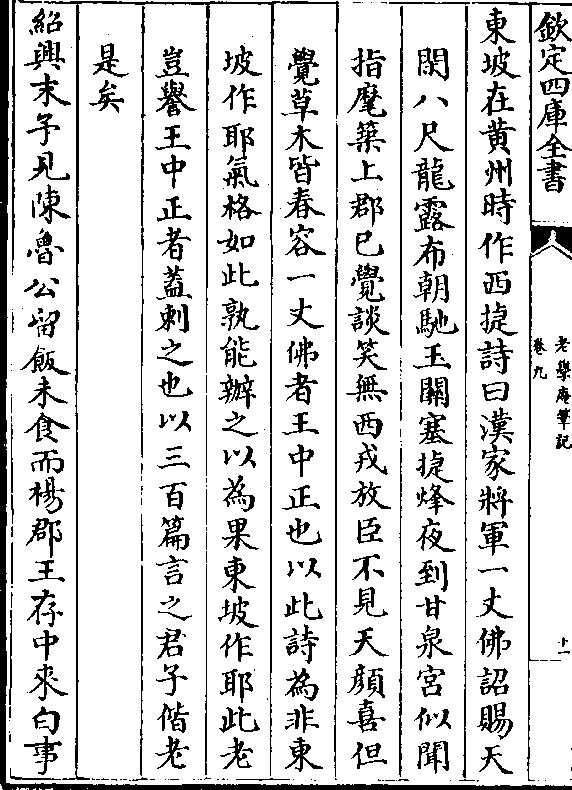 欽定四庫全書
老學庵筆記
卷九
十一
東坡在黄州時作西捷詩曰漢家將軍一丈佛詔賜天
閑八尺龍露布朝馳玉關塞捷烽夜到甘泉宮似聞
指麾築上郡已覺談笑無西戎放臣不見天顔喜但
覺草木皆春容一丈佛者王中正也以此詩為非東
坡作耶氣格如此孰能辦之以為果東坡作耶此老
豈譽王中正者蓋刺之也以三百篇言之君子偕老
是矣
紹興末予見陳魯公留飯未食而楊郡王存中來白事